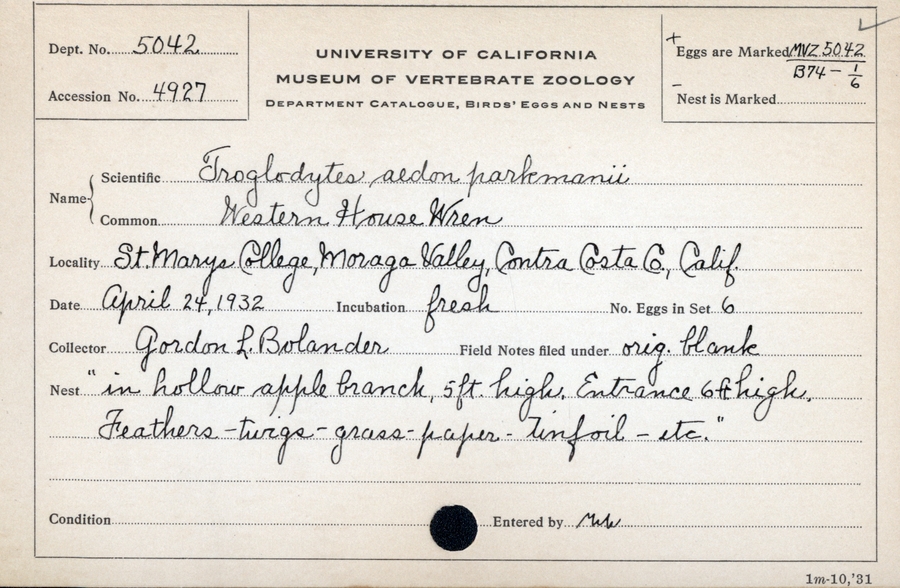 Dept. No. 5042
Accession No. 4927
UNIVERSITY OF CALIFORNIA
MUSEUM OF VERTEBRATE ZOOLOGY
DEPARTMENT CATALOGUE, BIRDS' EGGS AND NESTS
+ Eggs are Marked MVZ 5042
B74 - 1/6
- Nest is Marked
Name
Scientific Troglodytes aedon parkmanii
Common Western House Wren
Locality St. Marys College, Moraga Valley, Contra Costa Co., Calif.
Date April 24, 1932 Incubation fresh No. Eggs in Set 6
Collector Gordon L. Bolander Field Notes filed under orig. blank
Nest "in hollow apple branch, 5ft. high. Entrance 6ft high.
Feathers - twigs - grass - paper - tinfoil - etc."
Condition Entered by
1m-10,'31